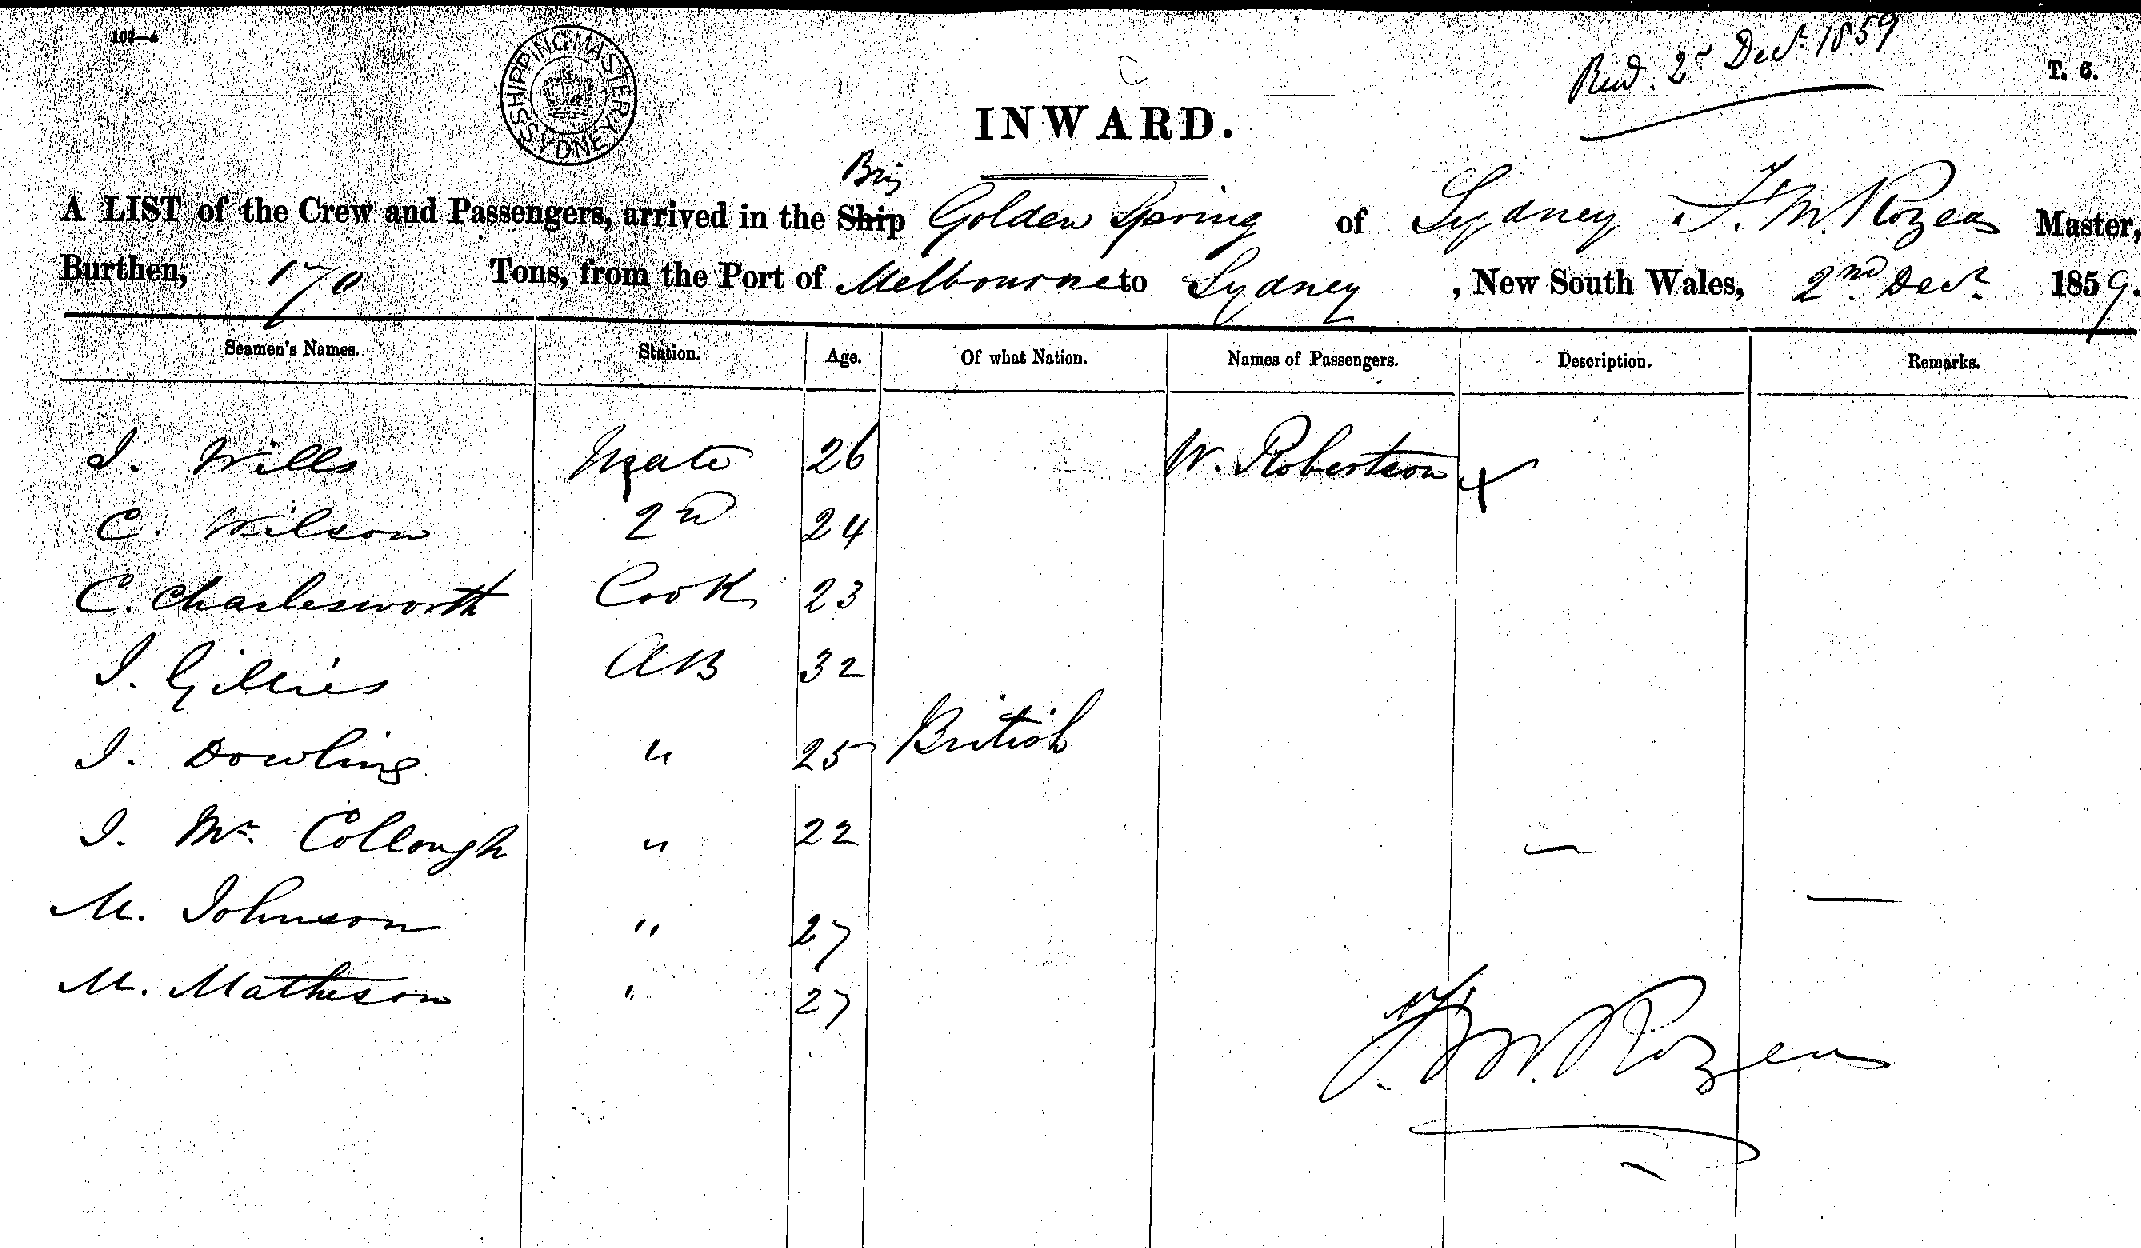 SHIPPING MASTER SYDNEY
Recd. 2d Decr. 1859
T. 6.
INWARD.
Brig
A LIST of the Crew and Passengers, arrived in the Ship Golden Spring of Sydney F. M. Rozea Master,
Burthen, 170 Tons, from the Port of Melbourne to Sydney, New South Wales, 2nd Decr. 1859.
Seamen's Names. Station. Age. Of what Nation. Names of Passengers. Description. Remarks.
J. Wills Mate 26 W. Robertson x
C. Wilson 2nd 24
C. Charlesworth Cook 23
J. Gillies AB 32
J. Dowling " 25 British
J. Mc Collough " 22
M. Johnson " 27
M. Matheson " 27
F. M. Rozea